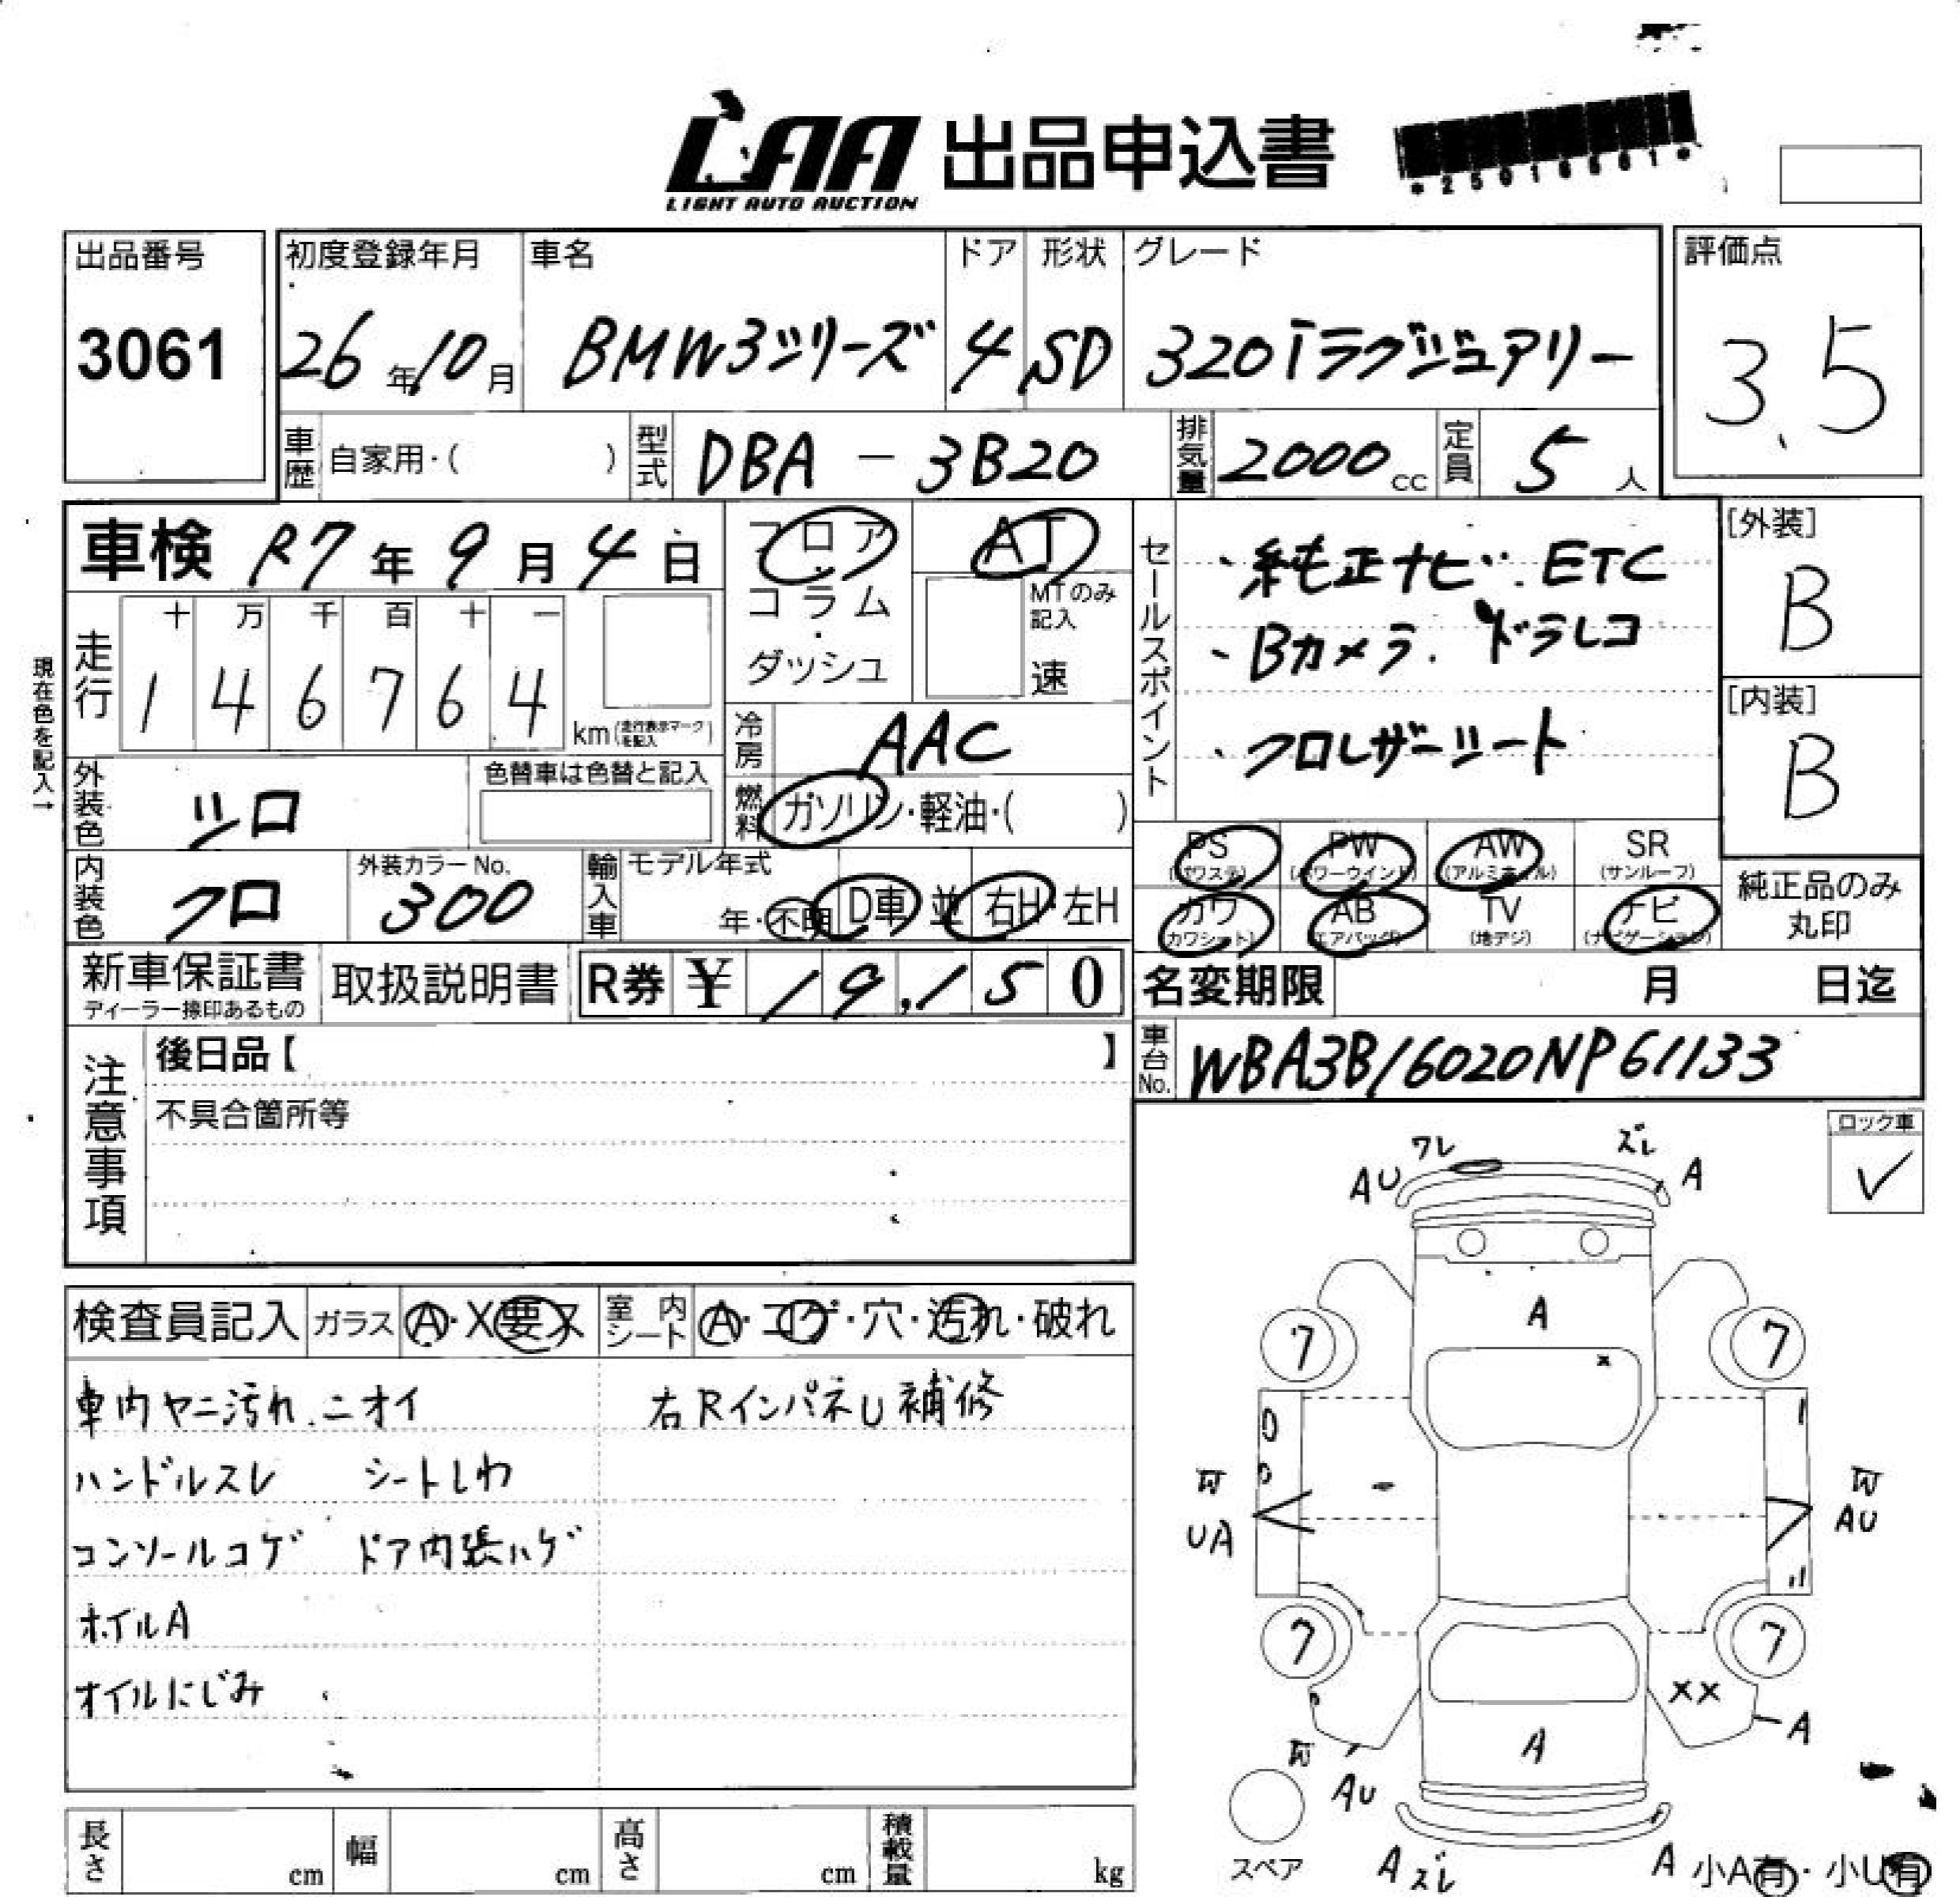 LAA 出品申込書
LIGHT AUTO AUCTION
*25016661*
出品番号
3061
初度登録年月
26年10月
車名
BMW3シリーズ
ドア
4
形状
SD
グレード
320iラグジュアリー
評価点
3.5
車歴 自家用・( )
型式 DBA - 3B20
排気量 2000cc
定員 5人
車検 R7年9月4日
フロア
・
コラム
・
ダッシュ
AT
MTのみ記入
速
走行
十 万 千 百 十 一
1 4 6 7 6 4
km(走行表示マークを記入)
現在色を記入→
冷房 AAC
外装色 シロ
色替車は色替と記入
燃料 ガソリン・軽油・( )
内装色 クロ
外装カラーNo.
300
輸入車 モデル年式
年・不明 D車 並 右H・左H
セールスポイント
・純正ナビ. ETC
・Bカメラ. ドラレコ
・クロレザーシート
[外装]
B
[内装]
B
PS (パワステ) PW (パワーウインド) AW (アルミホイル) SR (サンルーフ)
カワ (カワシート) AB (エアバッグ) TV (地デジ) ナビ (ナビゲーション)
純正品のみ
丸印
新車保証書
ディーラー捺印あるもの
取扱説明書
R券 ¥ 19,150
名変期限 月 日迄
車台No. WBA3B16020NP61133
注意事項
後日品【 】
不具合箇所等
ロック車
✓
検査員記入 ガラス A・X要ヌ 室内シート A・コゲ・穴・汚れ・破れ
車内ヤニ汚れ.ニオイ 右RインパネU補修
ハンドルスレ シートしわ
コンソールコゲ ドア内張ハゲ
ホイルA
オイルにじみ
ワレ ズレ
AU A
A
7 7
x
UA AU
7 7
XX
A
A
AU
スペア
Aズレ A
小A有・小U有
長さ cm 幅 cm 高さ cm 積載量 kg